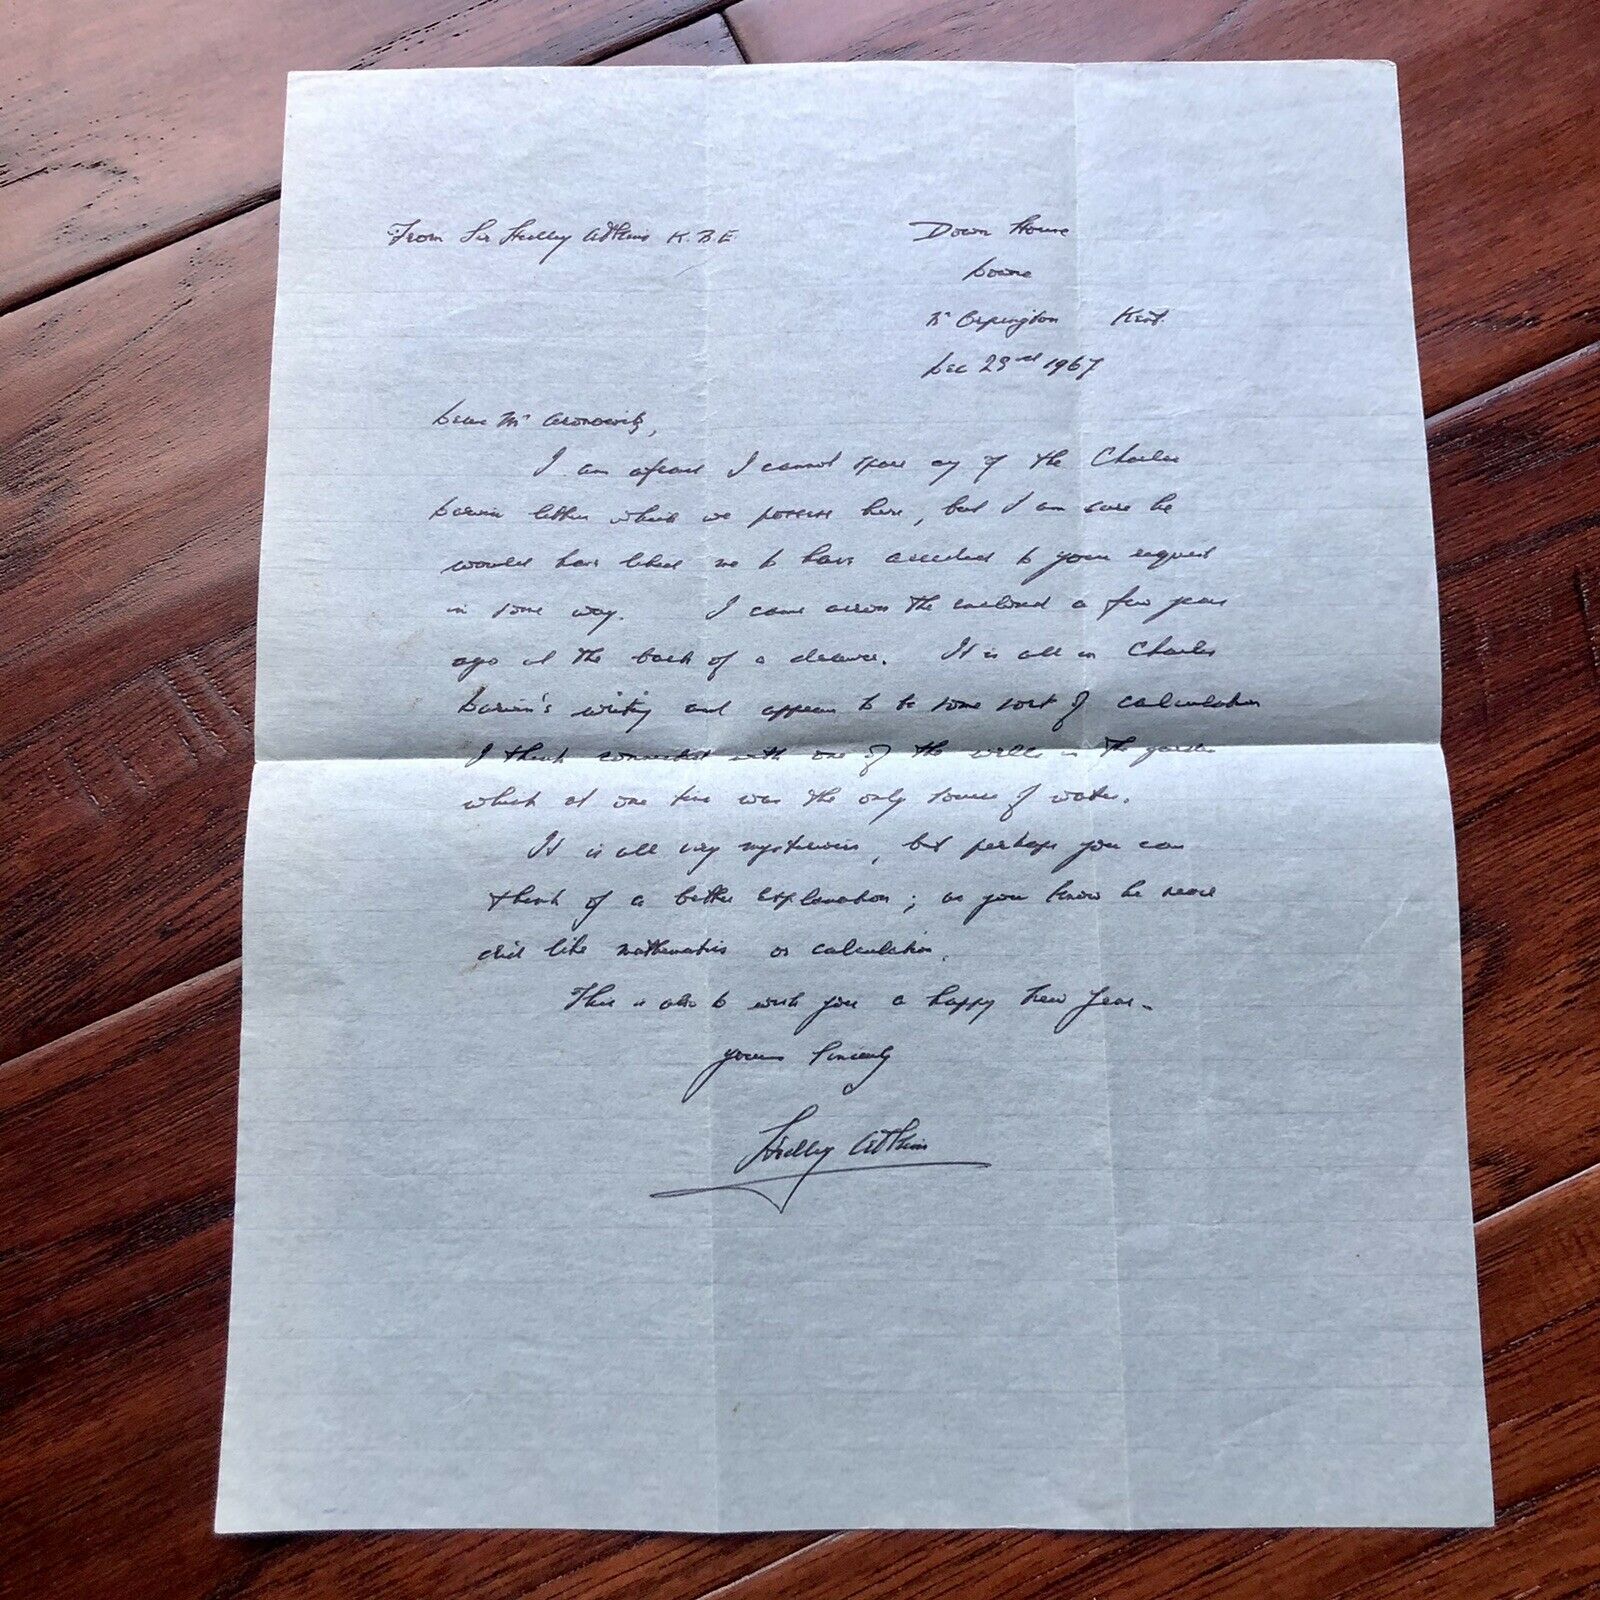 From Sir Hedley Atkins K.B.E.
Down House
Downe
Nr Orpington Kent.
Dec 29 1967
Dear Mr Aronowitz,
I am afraid I cannot spare any of the Charles
Darwin letters which we possess here, but I am sure he
would have liked me to have acceded to your request
in some way. I came across the enclosed a few years
ago at the back of a drawer. It is all in Charles
Darwin's writing and appears to be some sort of calculation
I think connected with one of the wells in the garden
which at one time was the only source of water.
It is all very mysterious, but perhaps you can
think of a better explanation; as you know he never
did like mathematics or calculation.
This is also to wish you a happy New Year.
Yours sincerely
Hedley Atkins